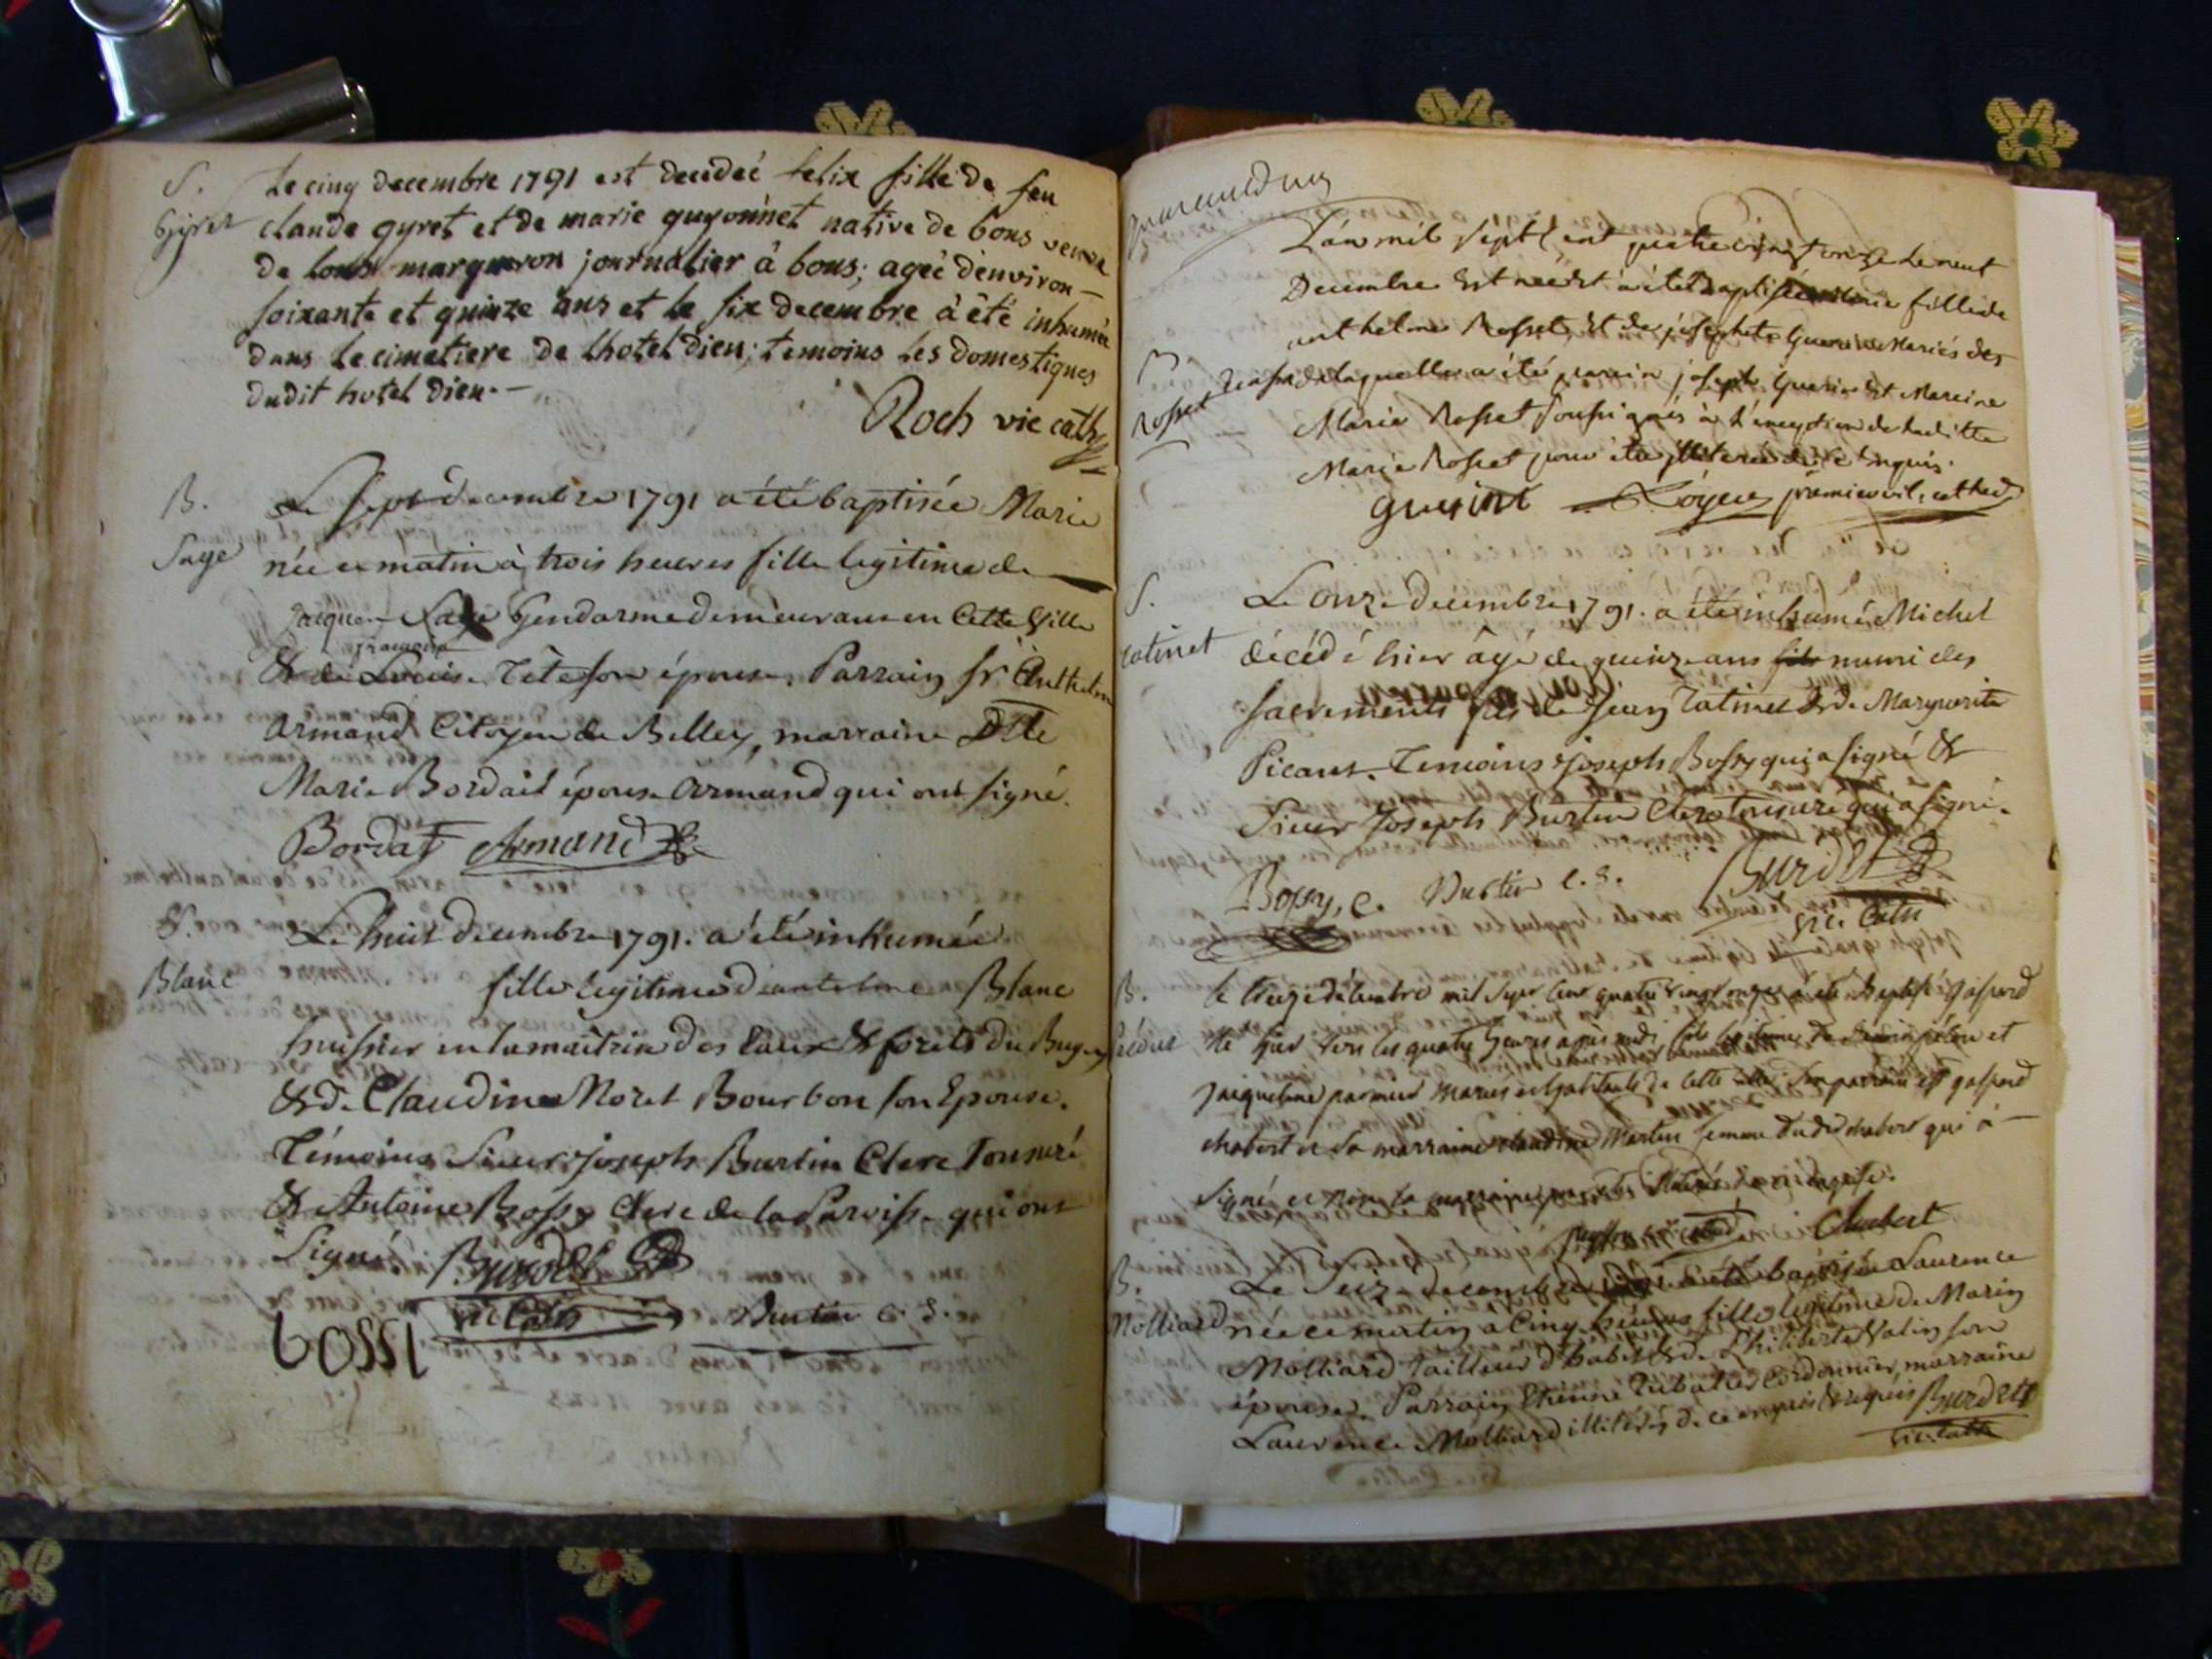 S.
Gyret
Le cinq decembre 1791 est decedeé felix fille de feu
claude gyret et de marie guyonnet native de bons veuve
de louis margueron journalier à bons; ageé d'environ
soixante et quinze ans et le six decembre à été inhumée
dans le cimetiere de lhotel dieu; temoins les domestiques
dudit hotel dieu.
Roch vic cath
B.
Sage
Le sept decembre 1791 a été baptisée Marie
née ce matin à trois heures fille legitime de
jacques Sage Gendarme demeurant en Cette Ville
françoise
& de Louise Tête son épouse. Parrain Sr Anthelme
Armand Citoyen de Belley, marraine Dlle
Marie Bordait épouse Armand qui ont signé.
Bordat Armand
S.
Blanc
Le huit decembre 1791. a été inhumée
fille legitime d'antelme Blanc
huissier en la maîtrise des Eaux & forêts du Bugey
& de Claudine Moret Bourbon son Epouse.
Témoins Sieur Joseph Burtin Clerc Tonsuré
& Antoine Bossy Clerc de la Paroisse qui ont
Signé Burdet
vic cath Burtin c. t.
bossi
L'an mil sept cent quatre vingt onze le neuf
Decembre est née et a été baptisée marie fille de
anthelme Rosset et de josephte Guerin Mariés des
B
Rosset
de laquelle a été parrain joseph Guerin et Mareine
Marie Rosset soussignés à l'exception de ladite
Marie Rosset pour être illiterée de ce enquis.
guerint Loyeux premier vic. cathed
S.
tatinet
Le onze decembre 1791. a été inhumé Michel
décédé hier âgé de quinze ans muni des
sacrements fils de Jean Tatinet & de Marguerite
Picaut. Temoins Joseph Bossy qui a signé &
Sieur Joseph Burtin Clerc tonsuré qui a signé.
Bossy, c. Burtin c. t. Burdet
vic. cath
B.
le treize décembre mil sept cent quatre vingt onze a été baptisé gaspard
né hier vers les quatre heures après midi fils légitime de et
jaqueline mariés et habitants de cette ville son parrain est gaspard
chabert et sa marraine claudine Martin femme dudit chabert qui à
signé et non la marraine
vic cathed Chabert
B.
Molliard
Le Seize decembre 1791 a été baptisée Laurence
née ce matin a Cinq heures fille legitime de Marin
Molliard tailleur d'habit & de Philiberte son
épouse. Parrain Etienne Cordonnier, marraine
Laurence Molliard illiterés de ce enquis & requis Burdet
vic. cath